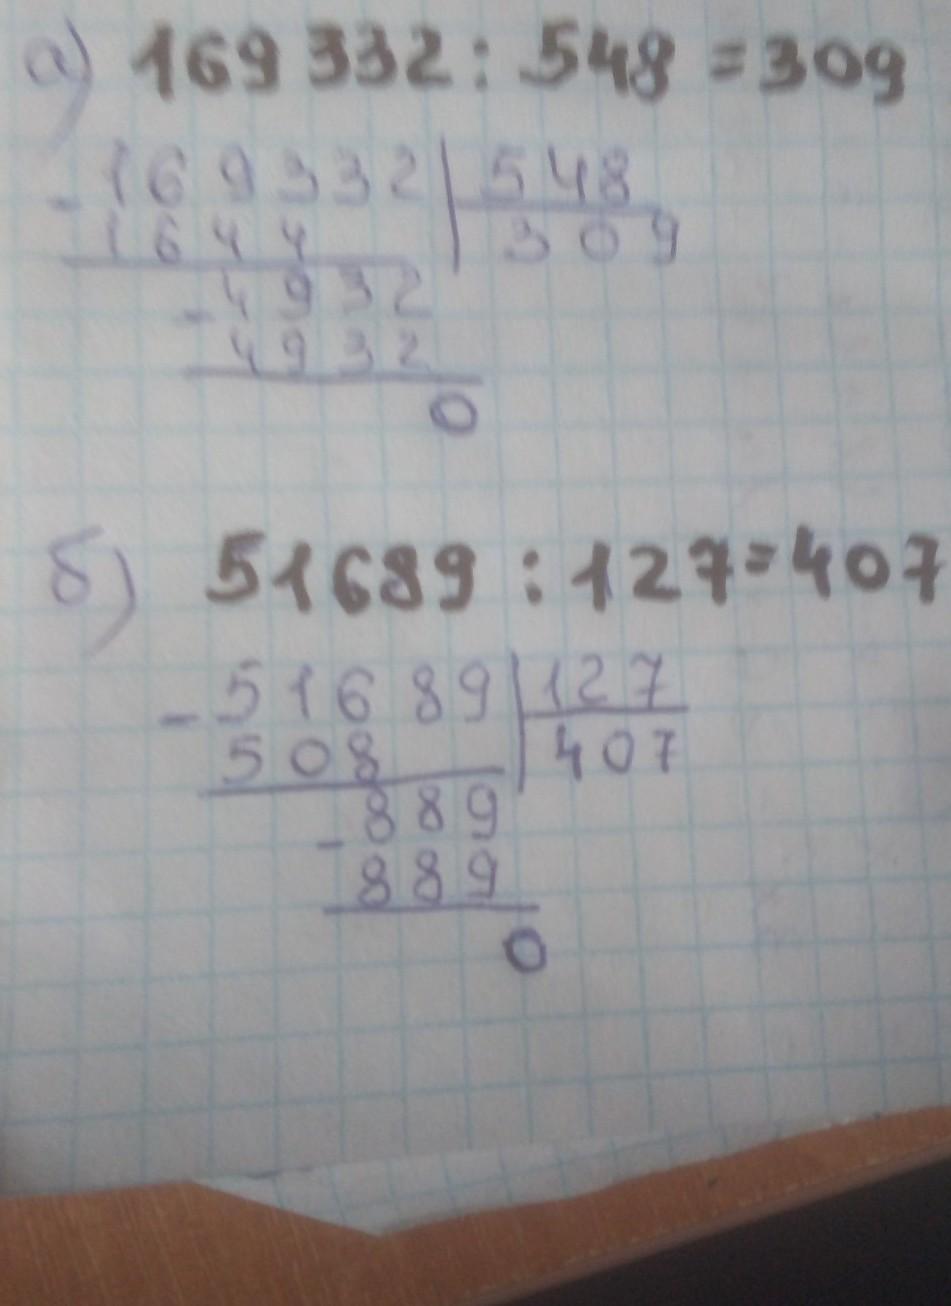 а) 169332 : 548 = 309
- 169332 | 548
1644 | 309
- 4932
4932
0
б) 51689 : 127 = 407
- 51689 | 127
508 | 407
- 889
889
0